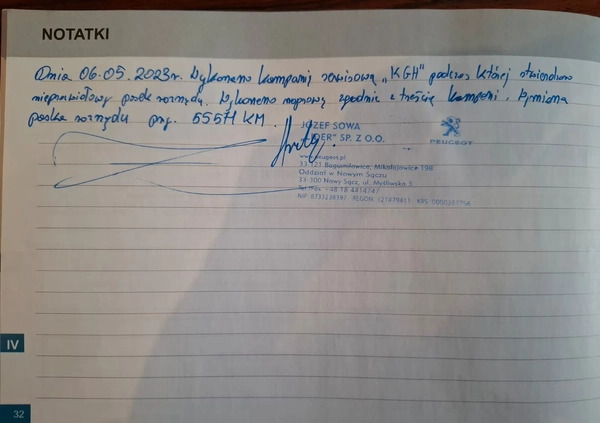 NOTATKI
Dnia 06.05.2023r. Wykonano kampanię serwisową „KGH" podczas której stwierdzono
nieprawidłowy pasek rozrządu. Wykonano naprawę zgodnie z treścią kampani. Wymiana
paska rozrządu przy. 55571 KM.
JÓZEF SOWA
"LIDER" SP. Z O.O.
PEUGEOT
33-121 Bogumiłowice, Mikołajowice 198
Oddział w Nowym Sączu
33-300 Nowy Sącz, ul. Myśliwska 3
Tel./Fax +48 18 4414747
NIP 8733238397 REGON 121479411 KRS
IV
32